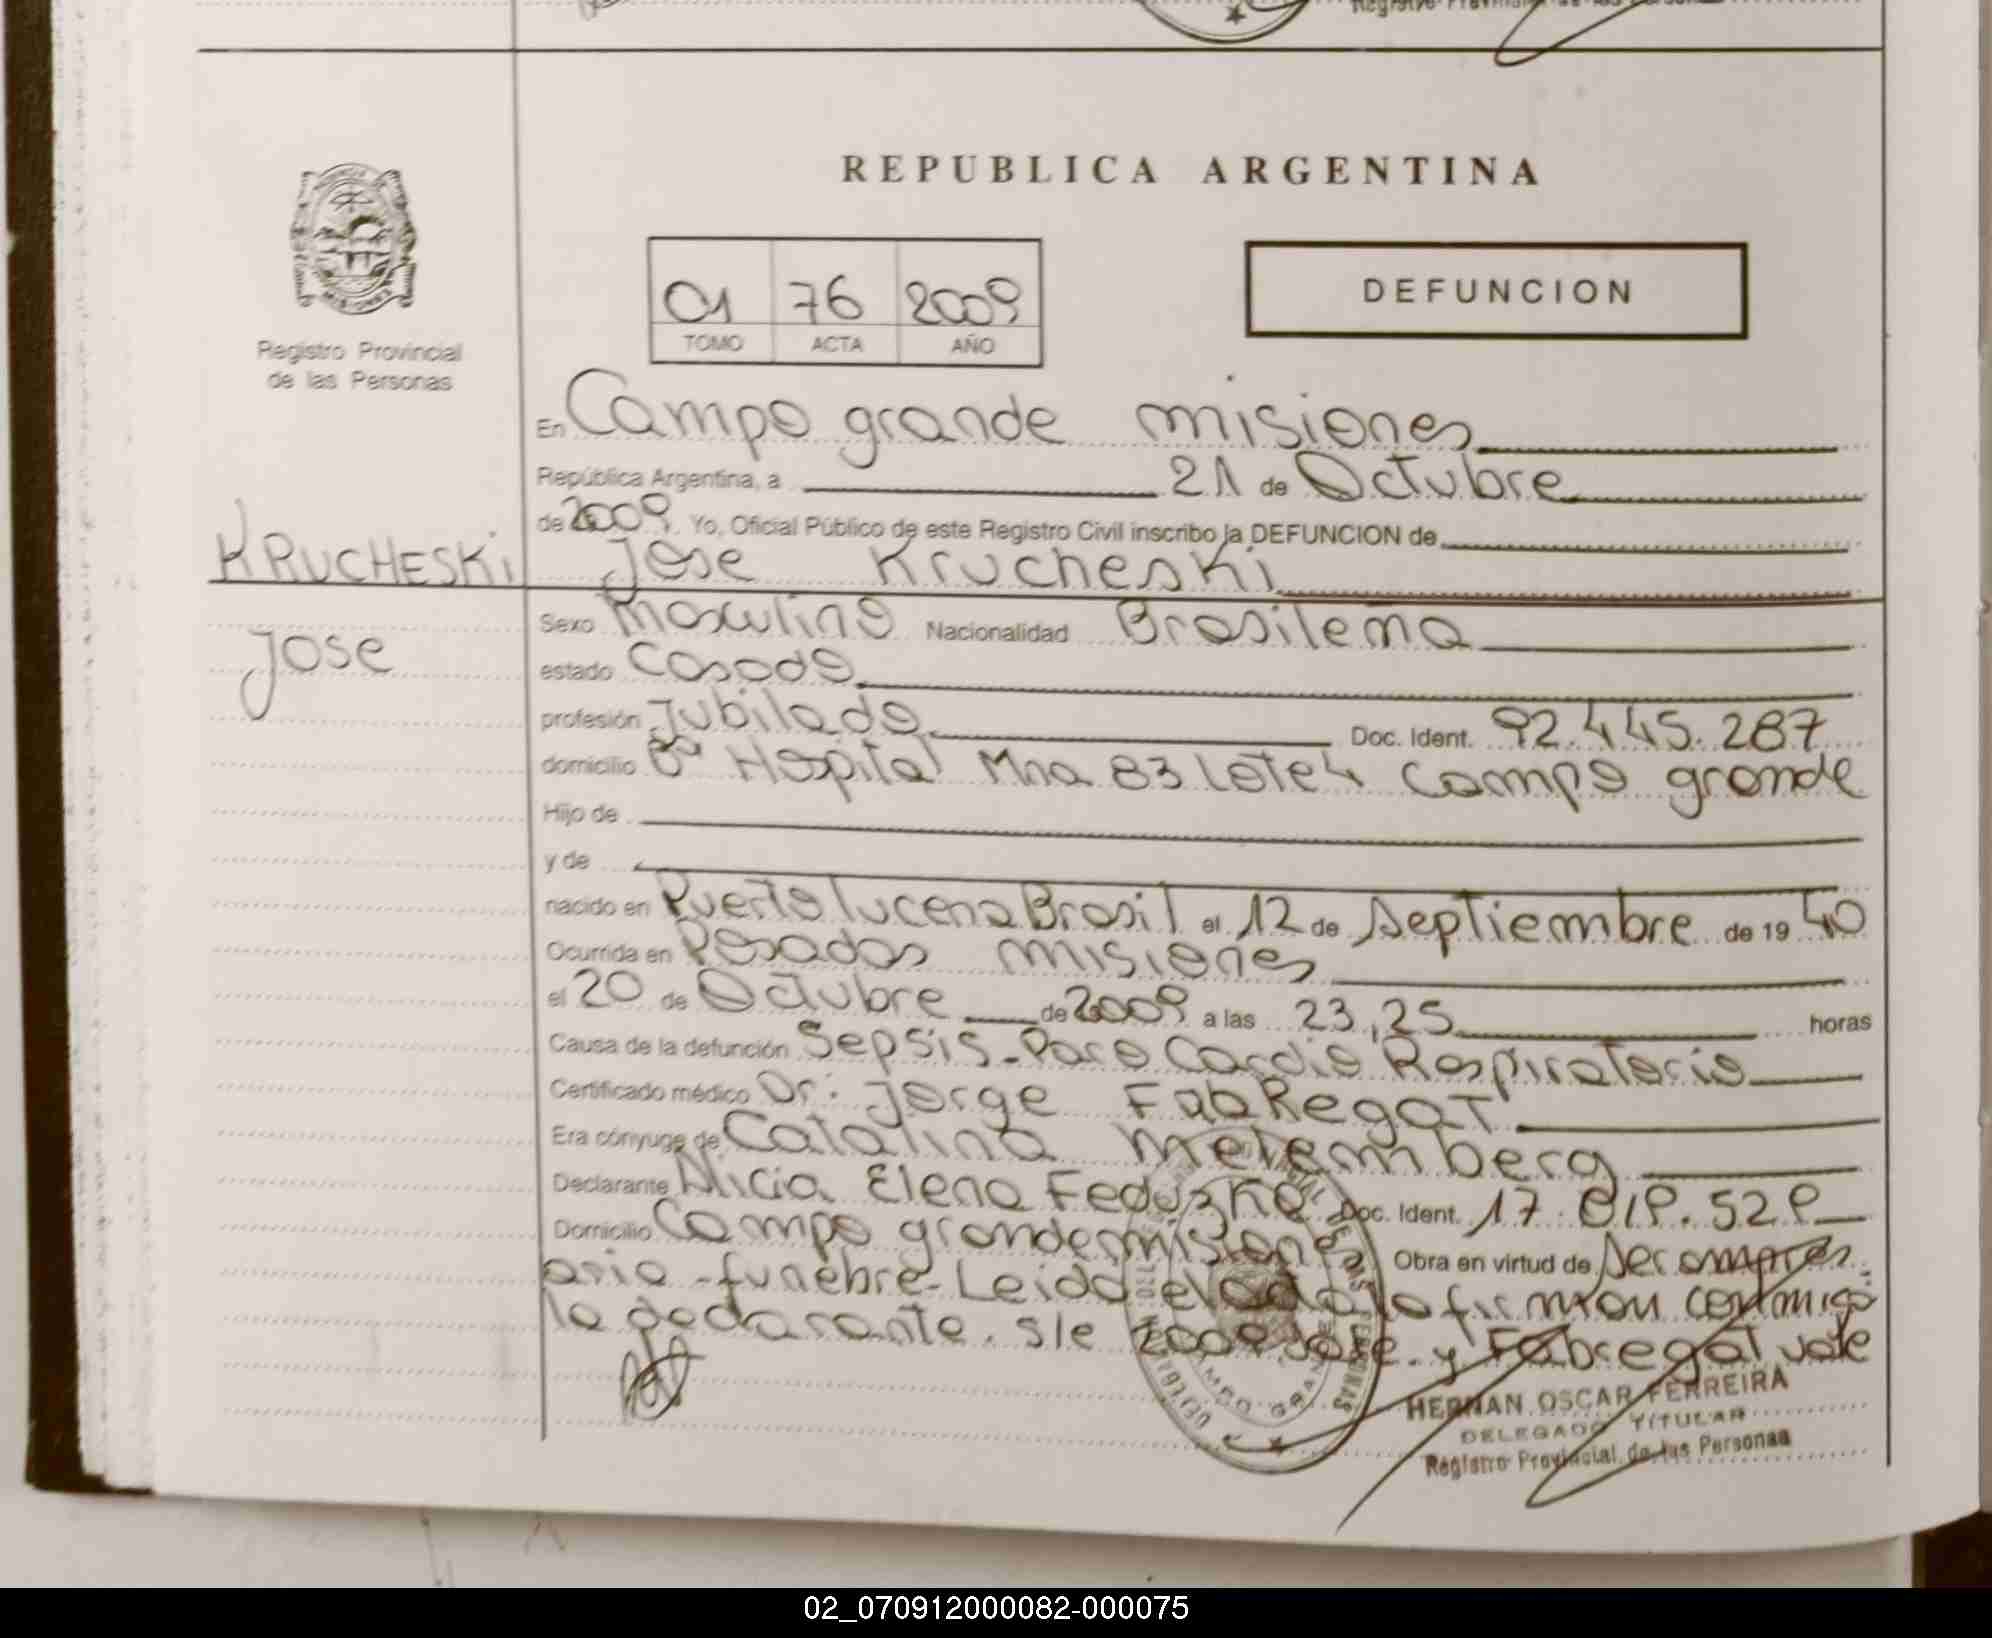 REPUBLICA ARGENTINA
Registro Provincial
de las Personas
01 76 2009
TOMO ACTA AÑO
DEFUNCION
En Campo grande misiones
República Argentina, a 21 de Octubre
de 2009 Yo, Oficial Público de este Registro Civil inscribo la DEFUNCION de
KRUCHESKi
JOSE
Jose Krucheski
Sexo Masculino Nacionalidad Brasilema
estado Casado
profesión Jubilado Doc. Ident. 92.445.287
domicilio Bº Hospital Mna 83 Lote 4 Campo grande
Hijo de
y de
nacido en Puerto lucena Brasil el 12 de Septiembre de 19 40
Ocurrida en Posadas misiones
el 20 de Octubre de 2009 a las 23,25 horas
Causa de la defunción Sepsis-Paro Cardio Respiratorio
Certificado médico Dr. Jorge FabRegat
Era cónyuge de Catalina Melemberg
Declarante Alicia Elena Feduszko Doc. Ident. 17.819.529
Domicilio Campo grande misiones Obra en virtud de Ser empres
aria -funebre- Leida el acta la firman conmigo
la declarante. s/e 2009 vale. y Fabregat vale
HERNAN OSCAR FERREIRA
DELEGADO TITULAR
Registro Provincial de las Personas
02_070912000082-000075